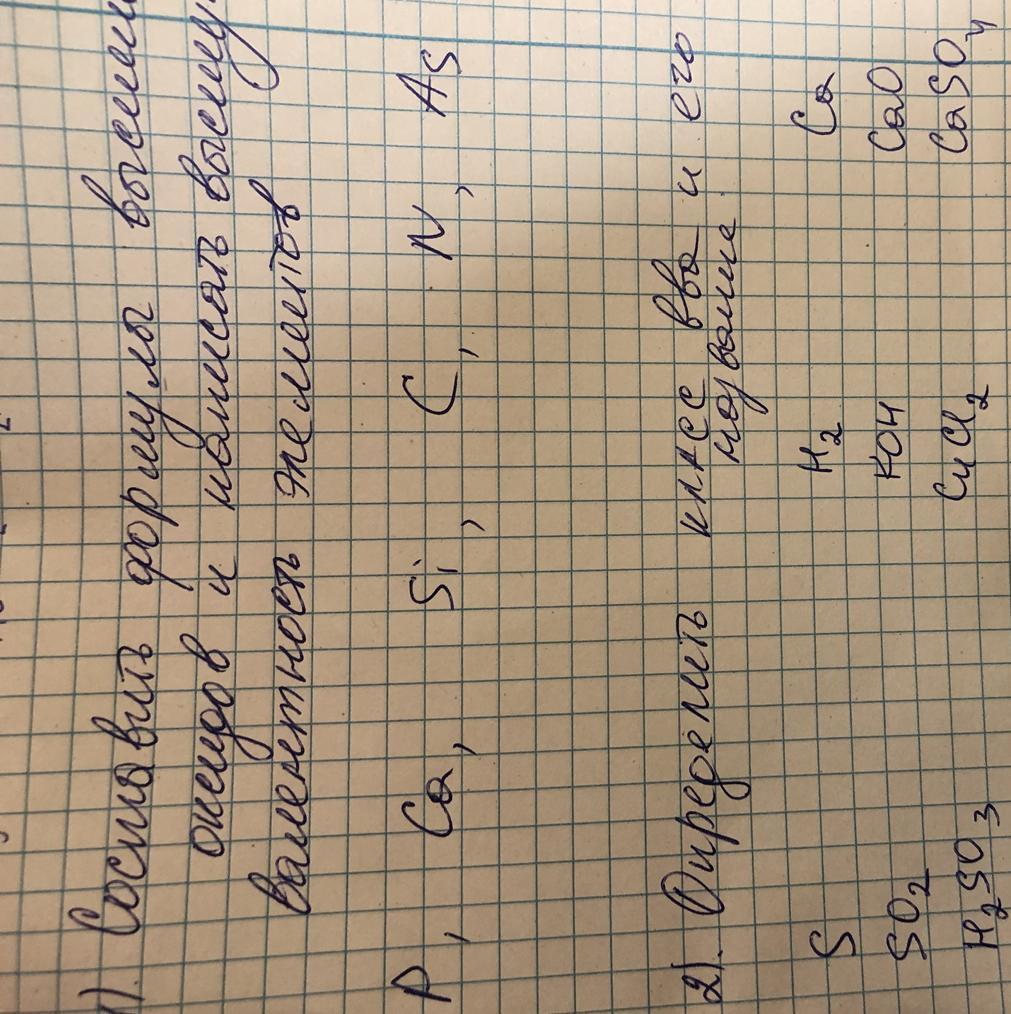 1). Составить формулы высши
оксидов и написать высшу
валентность элементов
P, Ca, Si, C, N, As
2). Определить класс в-ва и его
название
S H₂ Ca
SO₂ KOH CaO
H₂SO₃ CuCl₂ CaSO₄